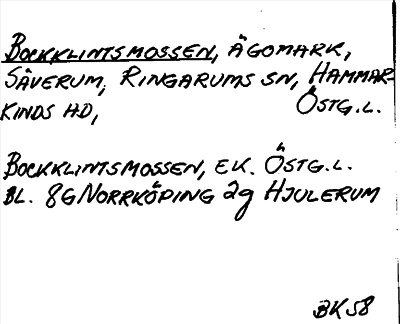 BOCKKLINTSMOSSEN, ÄGOMARK,
SÄVERUM, RINGARUMS SN, HAMMAR-
KINDS HD, ÖSTG.L.
BOCKKLINTSMOSSEN, EK. ÖSTG.L.
BL. 8G NORRKÖPING 2g HJULERUM
BK58